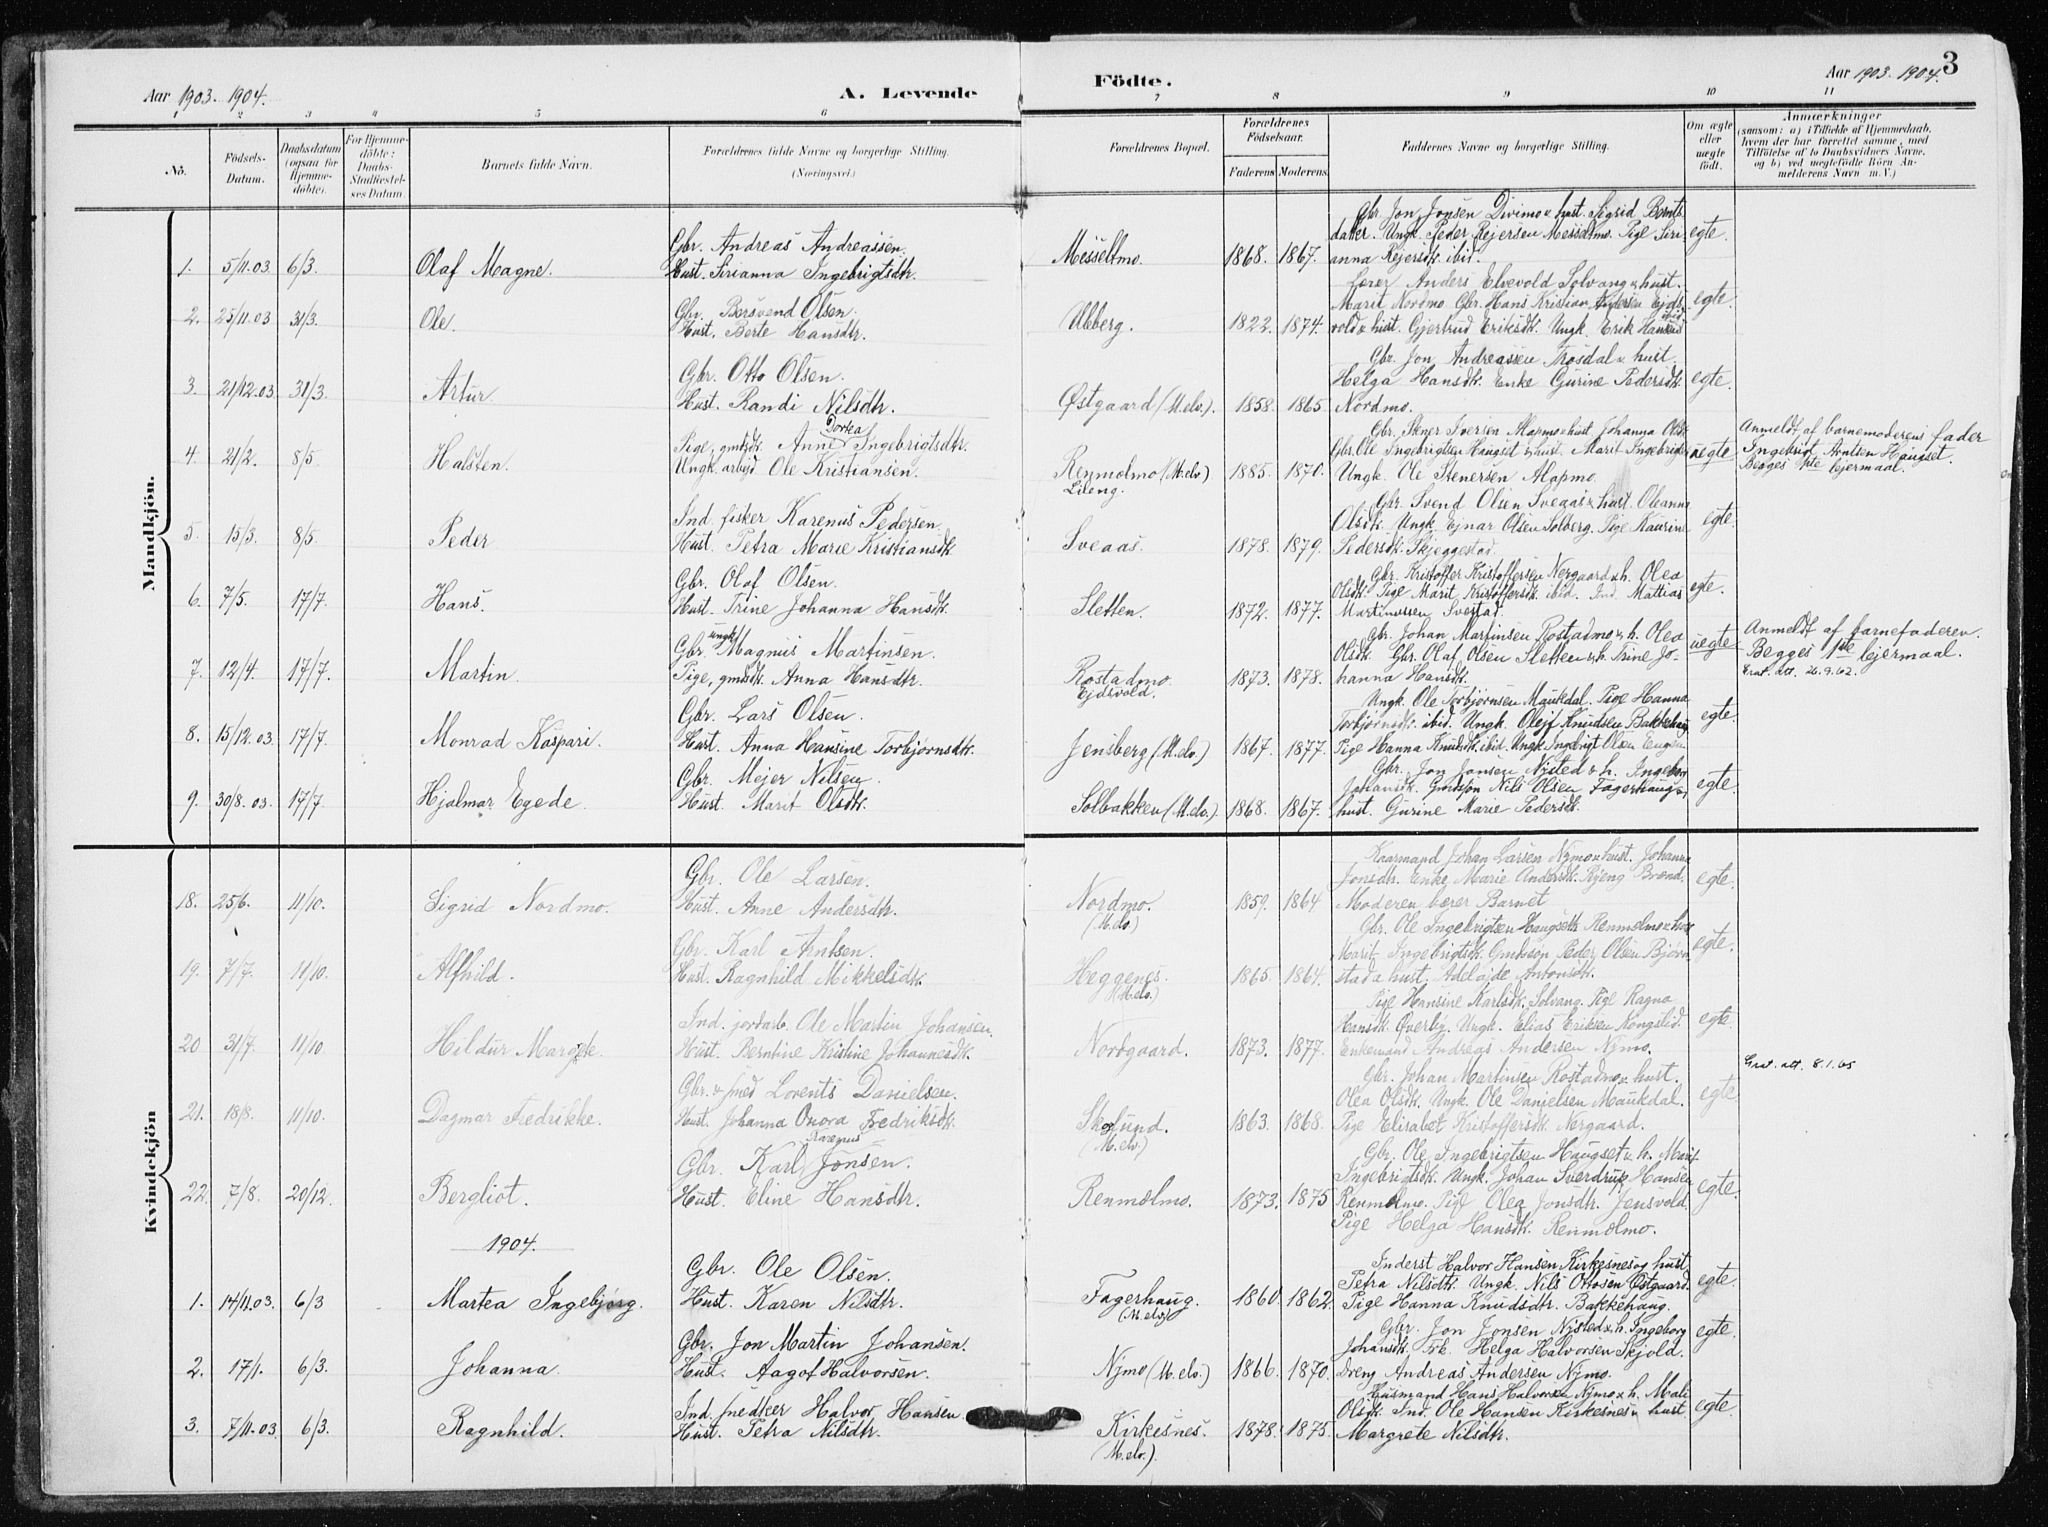 3
Aar 1903. 1904.
A. Levende
Födte.
Aar 1903. 1904.
1 2 3 4 5 6 7 8 9 10 11
No.
Födsels-Datum.
Daabsdatum (ogsaa for Hjemmedöbte).
For Hjemmedöbte: Daabs-Stadfæstelses Datum.
Barnets fulde Navn.
Forældrenes fulde Navne og borgerlige Stilling. (Næringsvei.)
Forældrenes Bopæl.
Forældrenes Födselsaar.
Faderens Moderens
Faddernes Navne og borgerlige Stilling.
Om ægte eller uægte födt.
Anmærkninger
(saasom: a) i Tilfælde af Hjemmedaab,
hvem der har forrettet samme, med
Tilföielse af to Daabsvidners Navne,
og b) ved uægtefödte Börn An-
melderens Navn m. V.)
Mandkjön.
1. 5/11.03 6/3. Olaf Magne.
Gbr. Andreas Andreassen.
Hust. Sirianna Ingebrigtsdtr.
Messeltmo. 1868. 1867.
Gbr. Jon Jonsen Divimo & hust. Sigrid Bernts
datter. Ungk. Peder Rejersen Messeltmo. Pige Siri-
anna Rejersdtr. ibid.
egte.
2. 25/11.03 31/3. Ole.
Gbr. Bersvend Olsen.
Hust. Berte Hansdtr.
Uleberg. 1822. 1874.
Lærer Anders Elvevold Solvang & hust.
Marit Nordmo Gbr. Hans Kristian Andersen Ejds
vold & hust. Gjertrud Eriksdtr. Ungk. Erik Hansen ibid
egte
3. 21/12.03 31/3. Artur.
Gbr. Otto Olsen.
Hust. Randi Nilsdtr.
Østgaard (M.elv.). 1858. 1865
Gbr. Jon Andreassen Trosdal & hust.
Helga Hansdtr. Enke Gurine Pedersdtr.
Nordmo.
egte.
4. 21/2. 8/5. Halsten.
Pige, gmdsdtr. Anne Dortea Ingebrigtsdtr.
Ungk. arbejd Ole Kristiansen.
Renmolmo (M.elv)
Lileng. 1885. 1870.
Gbr. Stener Iversen Alapmo & hust. Johanna Olsdtr.
Gbr. Ole Ingebrigtsen Haugset & hust. Marit Ingebrigtsdtr
Ungk. Ole Stenersen Alapmo.
uegte
Anmeldt af barnemoderens fader
Ingebrigt Arntsen Haugset.
Begges 1ste lejermaal.
5. 15/3. 8/5. Peder
Ind. fisker Karenus Pedersen.
Hust. Petra Marie Kristiansdtr.
Sveaas. 1878. 1879.
Gbr. Svend Olsen Sveaas & hust. Oleanna
Olsdtr. Ungk. Ejnar Olsen Solberg. Pige Kaurine
Pedersdtr. Skjeggestad.
egte.
6. 7/5. 17/7. Hans.
Gbr. Olaf Olsen.
Hust. Trine Johanna Hansdtr.
Sletten. 1872. 1877.
Gbr. Kristoffer Kristoffersen Nergaard & h. Olea
Olsdtr. Pige Marit Kristoffersdtr. ibid. Ind. Mattias
Martinussen Svestad.
egte.
7. 12/4. 17/7. Martin.
Gbr. ungk. Magnus Martinsen.
Pige, gmdsdtr. Anna Hansdtr.
Rostadmo
Ejdsvold. 1873. 1878.
Gbr. Johan Martinsen Rostadmo & h. Olea
Olsdtr. Gbr. Olaf Olsen Sletten & h. Trine Jo-
hanna Hansdtr.
uegte
Anmeldt af barnefaderen.
Begges 1ste lejermaal.
Grat. att. 26.9.62.
8. 15/12.03 17/7. Monrad Kaspari.
Gbr. Lars Olsen.
Hust. Anna Hansine Torbjørnsdtr.
Jensberg (M.elv.) 1867. 1877.
Ungk. Ole Torbjørnsen Maukdal. Pige Hanna
Torbjørnsdtr. ibid. Ungk. Olejf Knudsen Bakkehaug
Pige Hanna Knudsdtr. ibid. Ungk. Ingebrigt Olsen Eugen
egte.
9. 30/8.03 17/7. Hjalmar Egede.
Gbr. Mejer Nilsen.
Hust. Marit Olsdtr.
Solbakken (M.elv.) 1868. 1867.
Gbr. Jon Jonsen Nysted & h. Ingeborg
Johansdtr. Gmdssøn Nils Olsen Fagerhaug &
hust. Gurine Marie Pedersdtr.
egte.
Kvindekjön
18. 25/6. 11/10. Sigrid Nordmo.
Gbr. Ole Larsen.
Hust. Anne Andersdtr.
Nordmo.
(M.elv.) 1859. 1864
Kaarmand Johan Larsen Nymo & hust. Johanna
Jonsdtr. Enke Marie Andersdtr. Kjeng Brænd.
Moderen bærer Barnet
egte.
19. 7/7. 11/10. Alfhild.
Gbr. Karl Arntsen.
Hust. Ragnhild Mikkelsdtr.
Heggenes.
(M.elv.) 1865. 1864.
Gbr. Ole Ingebrigtsen Haugseth Renmolmo & hust
Marit Ingebrigtsdtr. Gmdssøn Peder Olsen Bjørn
stad & hust. Adelajde Antonsdtr.
egte.
20 31/7. 11/10. Hildur Margete.
Ind. jordarb. Ole Martin Johansen.
Hust. Berntine Kristine Johannesdtr.
Nordgaard. 1873. 1877.
Pige Hansine Karlsdtr. Solvang. Pige Ragna
Hansdtr. Øverby. Ungk. Elias Eriksen Kongslid.
Enkemand Andreas Andersen Nymo.
egte.
Grat. att. 8.1.65
21. 18/8. 11/10. Dagmar Fredrikke.
Gbr. & smed Lorents Danielsen.
Hust. Johanna Onora Fredriksdtr.
Skoglund.
(M.elv.) 1863. 1868.
Gbr. Johan Martinsen Rostadmo & hust.
Olea Olsdtr. Ungk. Ole Danielsen Maukdal.
Pige Elisabet Kristoffersdtr. Nergaard.
egte
22. 7/8. 20/12. Bergliot.
Gbr. Karl Karenus Jonsen.
Hust. Eline Hansdtr.
Renmolmo. 1873. 1875
Gbr. Ole Ingebrigtsen Haugset & h. Marit
Ingebrigtsdtr. Ungk. Johan Sverdrup Hansen
Renmolmo. Pige Olea Jonsdtr. Jensvold.
Pige Helga Hansdtr. Renmolmo.
egte.
1904.
1. 14/11.03. 6/3 Martea Ingebjørg.
Gbr. Ole Olsen.
Hust. Karen Nilsdtr.
Fagerhaug.
(M.elv) 1860. 1862.
Inderst Halvor Hansen Kirkesnes og hust.
Petra Nilsdtr. Ungk. Nils Ottosen Østgaard.
Pige Hanna Knudsdtr. Bakkehaug.
egte.
2. 17/1. 6/3. Johanna.
Gbr. Jon Martin Johansen.
Hust. Aagot Halvorsen.
Nymo (M.elv.) 1866. 1870.
Gbr. Jon Jonsen Nysted & h. Ingeborg
Johansdtr. Frk. Helga Halvorsen Skjold.
Dreng Andreas Andersen Nymo.
egte.
3. 7/11.03 6/3. Ragnhild.
Ind. snedker Halvor Hansen.
Hust. Petra Nilsdtr.
Kirkesnes.
(M.elv.) 1878. 1875.
Husmand Hans Halvorsen Nymo & h. Mali
Olsdtr. Ind. Ole Hansen Kirkesnes & hust
Margrete Nilsdtr.
egte.